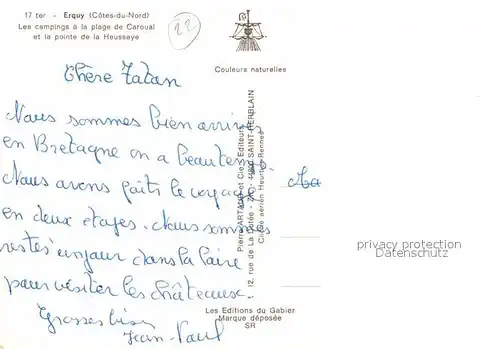 17 ter - Erquy (Côtes-du-Nord)
Les campings à la plage de Caroual
et la pointe de la Heussaye
22
Couleurs naturelles
Chère Tatan
Nous sommes bien arrivés
en Bretagne on a beau temps.
Nous avons faits le voyage
en deux étapes. Nous sommes
restés un jour dans la Loire
pour visiter les châteaux.
Grosses bises
Jean-Paul
Pierre ARTAUD et Cie - Editeurs
12, rue de La - 44800 SAINT-HERBLAIN
Cliché aérien Heurtier Rennes
privacy protection
Datenschutz
Les Editions du Gabier
Marque déposée
SR